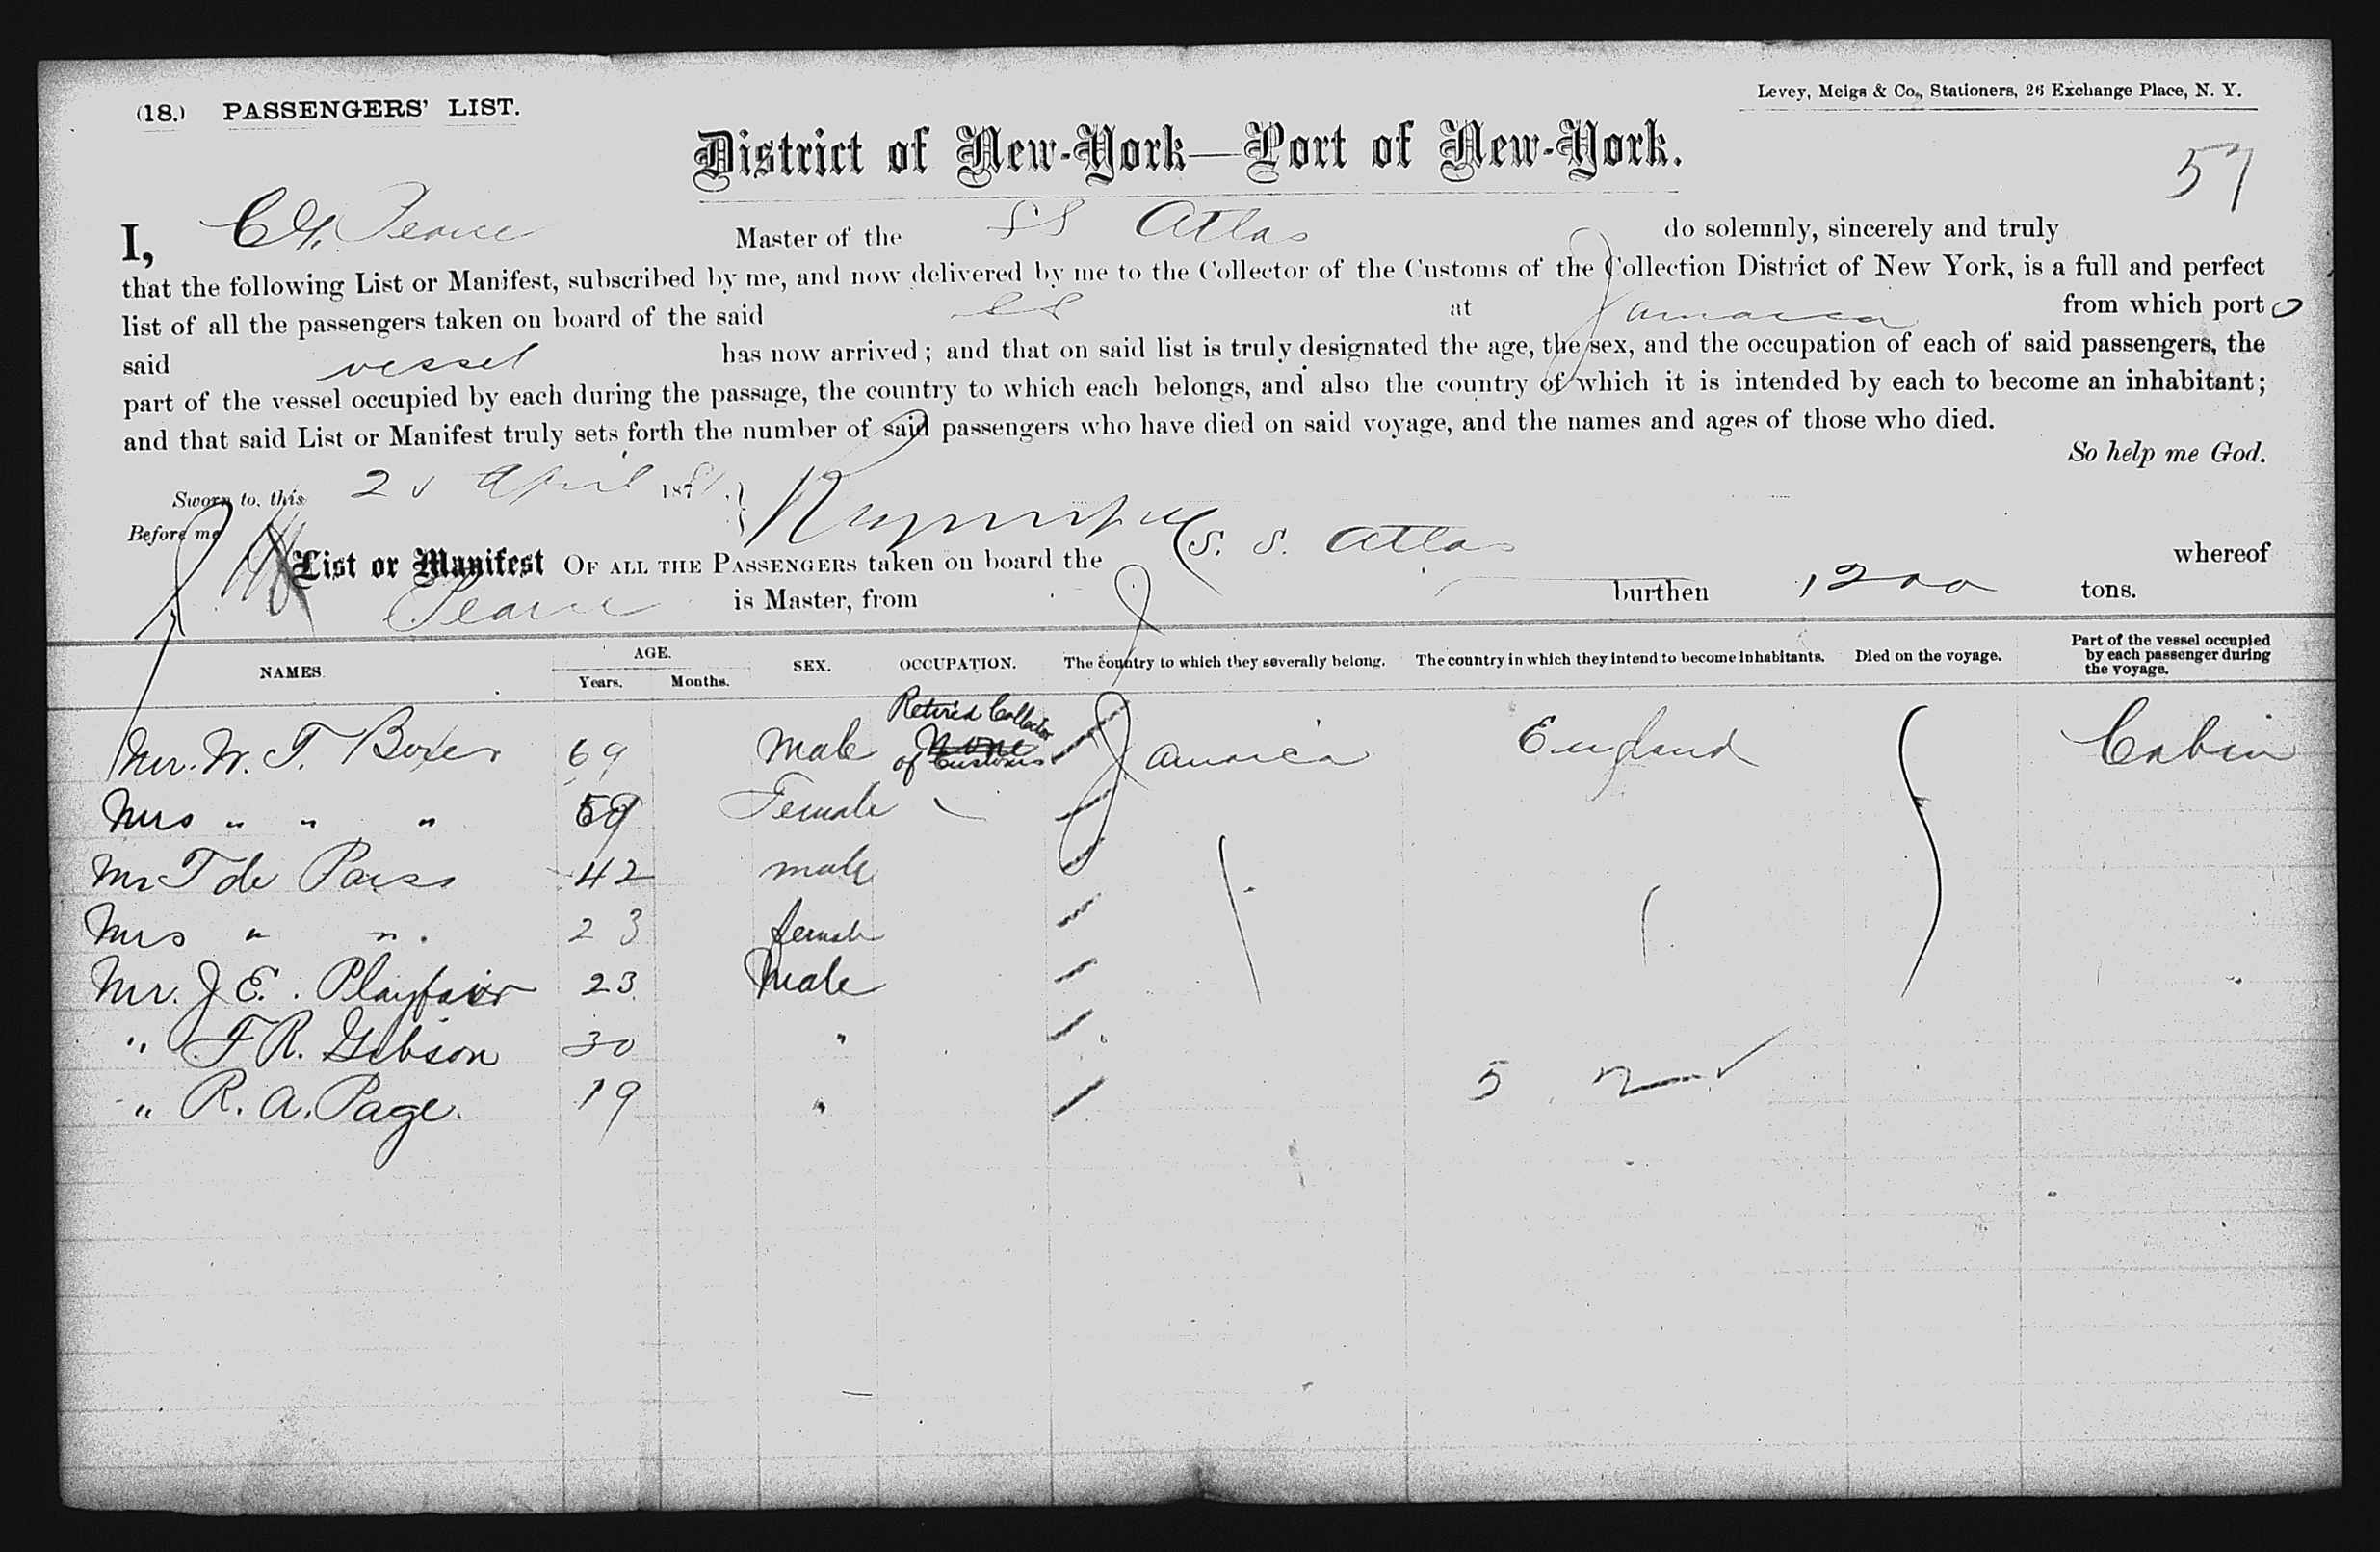 (18.) PASSENGERS' LIST.
Levey, Meigs & Co., Stationers, 26 Exchange Place, N. Y.
District of New-York—Port of New-York.
57
I, Pearce Master of the SS Atlas do solemnly, sincerely and truly
that the following List or Manifest, subscribed by me, and now delivered by me to the Collector of the Customs of the Collection District of New York, is a full and perfect
list of all the passengers taken on board of the said SS at Jamaica from which port
said vessel has now arrived; and that on said list is truly designated the age, the sex, and the occupation of each of said passengers, the
part of the vessel occupied by each during the passage, the country to which each belongs, and also the country of which it is intended by each to become an inhabitant;
and that said List or Manifest truly sets forth the number of said passengers who have died on said voyage, and the names and ages of those who died.
So help me God.
Sworn to, this April 187
Before me
List or Manifest OF ALL THE PASSENGERS taken on board the S. S. Atlas whereof
Pearce is Master, from burthen 1200 tons.
NAMES. AGE. Years. Months. SEX. OCCUPATION. The country to which they severally belong. The country in which they intend to become inhabitants. Died on the voyage. Part of the vessel occupied by each passenger during the voyage.
Mr. W. T. Boxer 69 Male Retired Collector of Customs Jamaica England Cabin
Mrs " " " 59 Female
Mr T de Pass 42 male
Mrs " " 23 female
Mr. J E. Playfair 23 Male
" F R. Gibson 30 "
" R. A. Page. 19 "
5